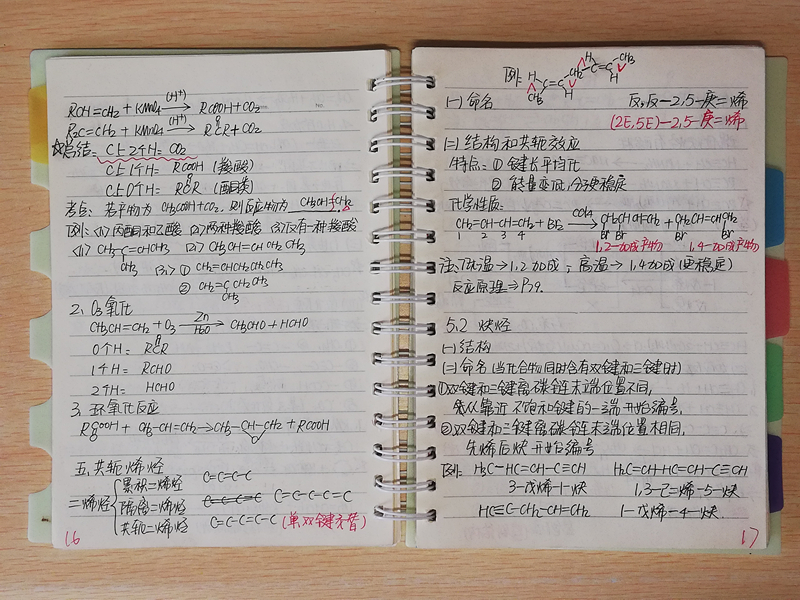 RCH=CH₂ + KMnO₄ —(H⁺)→ RCOOH+CO₂
R₂C=CH₂ + KMnO₄ —(H⁺)→ RCR + CO₂
O
☆总结: C上2个H= CO₂
C上1个H= RCOOH (羧酸)
C上0个H= RCR (酮类)
O
考点: 若产物为 CH₃COOH+CO₂, 则反应物为 CH₃CH=CH₂
例: <1>丙酮和乙酸 <2>两种羧酸 <3>只有一种羧酸
<1> CH₃-C=CHCH₃ <2> CH₃CH=CHCH₂CH₃
CH₃
<3> ① CH₃=CHCHCH₂CH₃
② CH₂=C CH₂CH₃
CH₃
2. O₃氧化
CH₃CH=CH₂ + O₃ —Zn/H₂O→ CH₃CHO + HCHO
0个H= RCR
O
1个H= RCHO
2个H= HCHO
3. 环氧化反应
RCOOH + CH₃-CH=CH₂→CH₃-CH-CH₂ + RCOOH
O
五. 共轭烯烃
二烯烃
累积二烯烃 C=C=C-C
隔离二烯烃 C=C-C-C=C
共轭二烯烃 C=C-C=C-C (单双键交替)
16
例: H CH₃ C=C H CH₂ H C=C CH₃ H
(一) 命名 反,反-2,5-庚二烯
(2E,5E)-2,5-庚二烯
(二) 结构和共轭效应
特点: ① 键长平均化
② 能量变低,分子更稳定
化学性质:
CH₂=CH-CH=CH₂ + Br₂ —CCl₄→ CH₂CHCH=CH₂ + CH₂CH=CHCH₂
1 2 3 4 Br Br Br Br
1,2-加成产物 1,4-加成产物
注: 低温→1,2加成, 高温→1,4加成(更稳定)
反应原理→P79.
5.2 炔烃
(一) 结构
(二) 命名 (当化合物同时含有双键和三键时)
①双键和三键离碳链末端位置不同,
先从靠近不饱和键的一端开始编号.
②双键和三键离碳链末端位置相同,
先烯后炔开始编号
例: H₃C-HC=CH-C≡CH H₂C=CH-HC=CH-C≡CH
3-戊烯-1-炔 1,3-己二烯-5-炔
HC≡C-CH₂-CH=CH₂ 1-戊烯-4-炔.
17